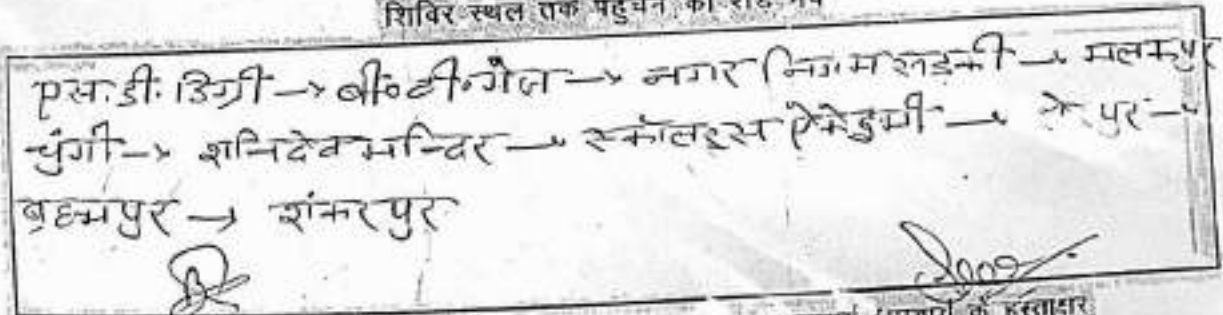 शिविर स्थल तक पहुंचने का रोड मैप
एस.डी. डिग्री → बी०टी०गंज → नगर निगम रुड़की → मलकपुर
चुंगी → शनिदेव मन्दिर → स्कॉलर्स ऐकेडमी → पुर →
ब्रह्मपुर → शंकरपुर
के हस्ताक्षर